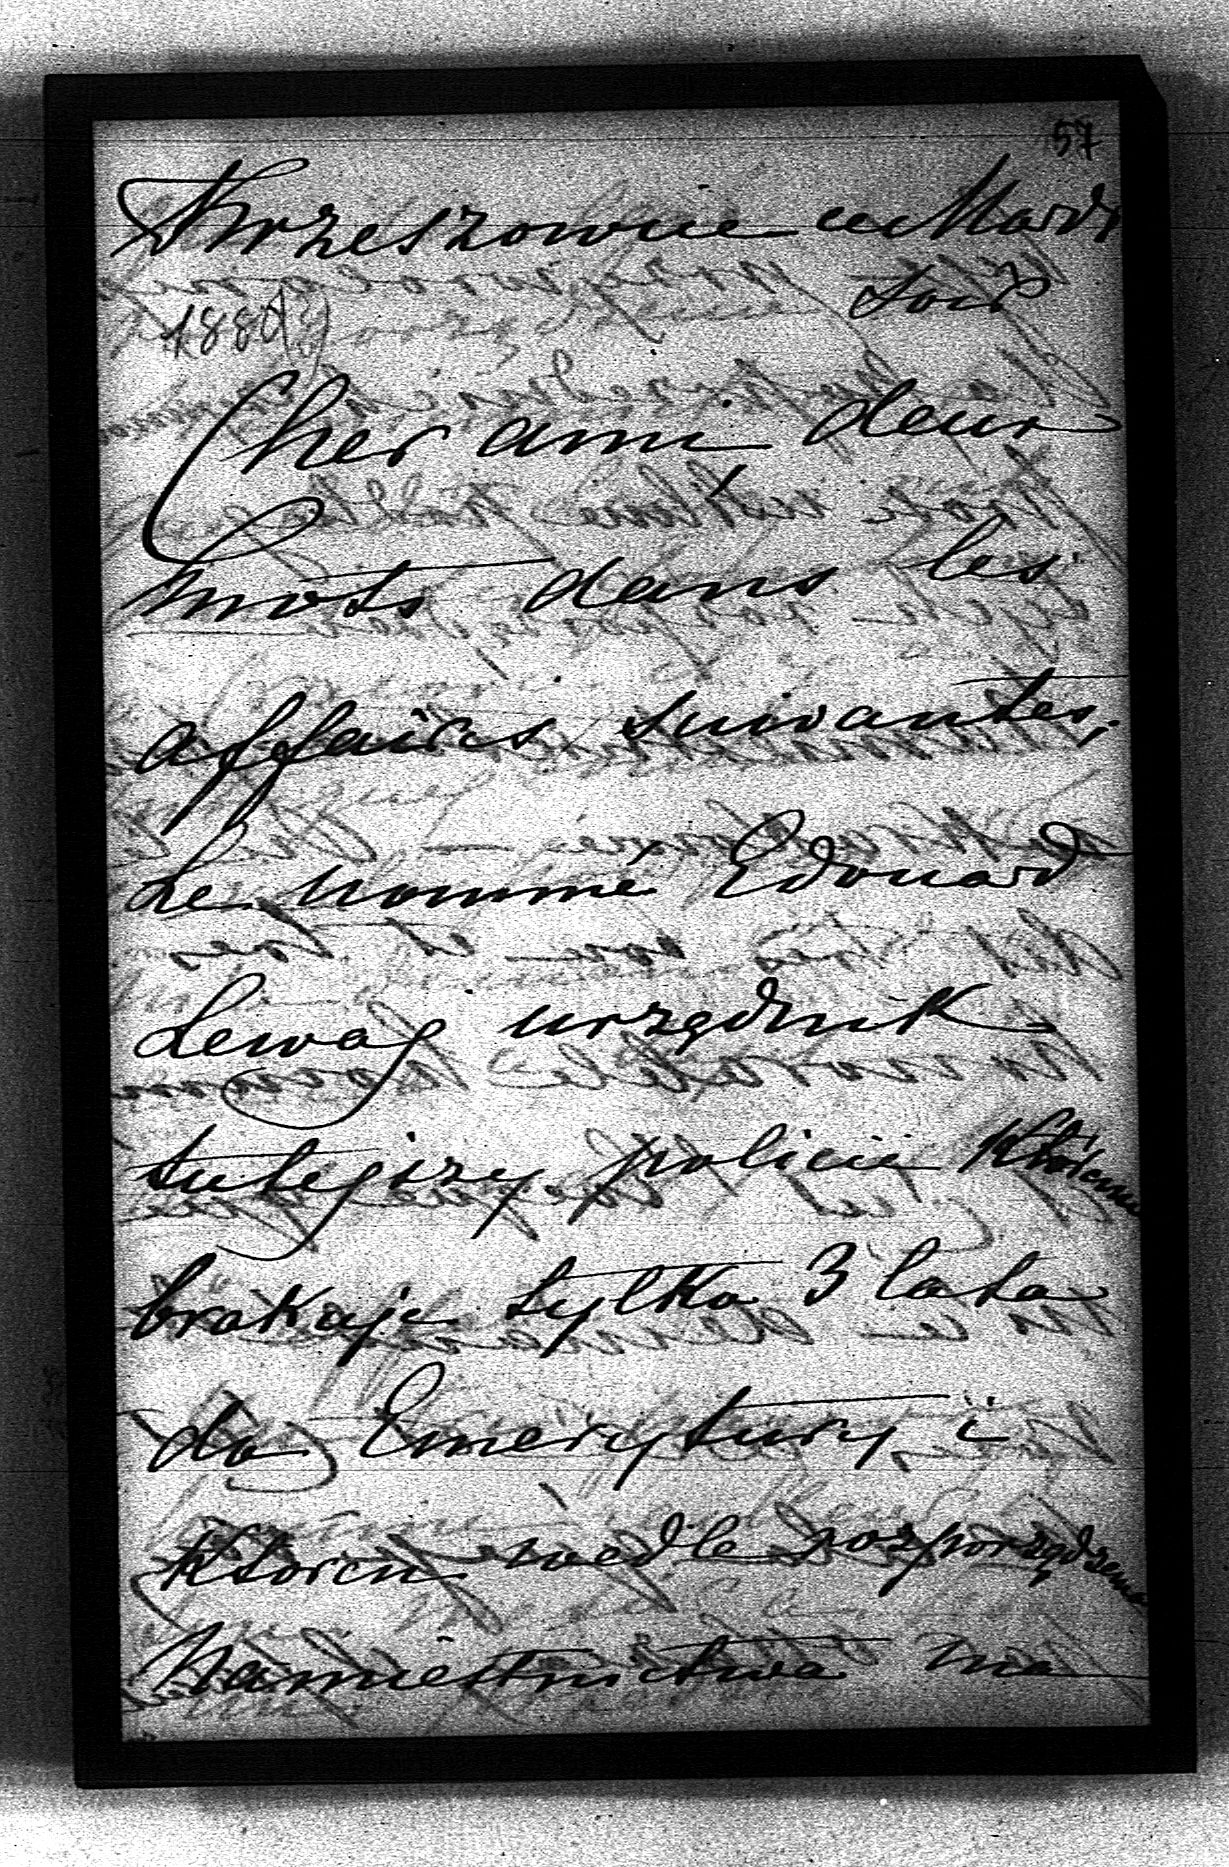 57
Krzeszowice ce Mardi
soir
1880(?)
Cher ami, deux
mots dans les
affaires suivantes.
Le nommé Edouard
Lewaj urzędnik
tutejszy policii któremu
brakuje tylko 3 lata
do Emerytury i
który wedle rozporządzenia
Namiestnictwa ma